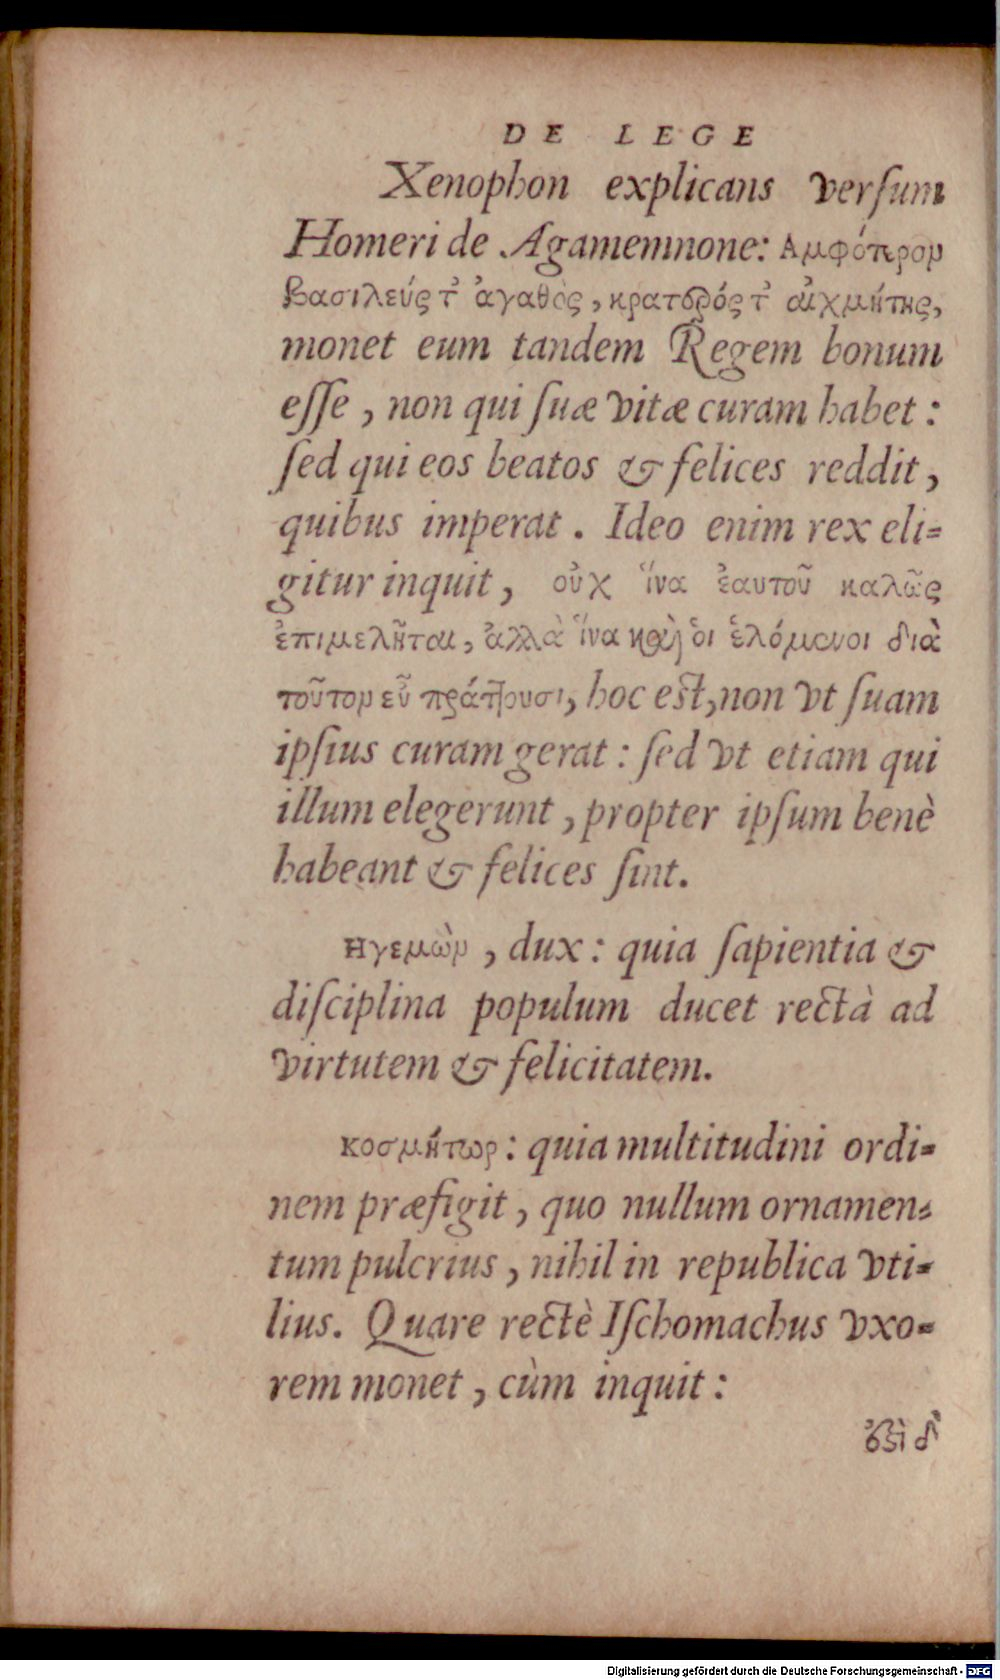 DE LEGE
Xenophon explicans verſum
Homeri de Agamemnone: Αμφότερον
βασιλεύς τ᾽ ἀγαθὸς, κρατερός τ᾽ αἰχμήτης,
monet eum tandem Regem bonum
eſſe, non qui ſuæ vitæ curam habet:
ſed qui eos beatos & felices reddit,
quibus imperat. Ideo enim rex eli-
gitur inquit, οὐχ ἵνα ἑαυτοῦ καλῶς
ἐπιμελῆται, ἀλλὰ ἵνα καὶ οἱ ἑλόμενοι διὰ
τοῦτον εὖ πράττουσι, hoc est, non vt ſuam
ipſius curam gerat: ſed vt etiam qui
illum elegerunt, propter ipſum benè
habeant & felices ſint.
ηγεμὼν, dux: quia ſapientia &
diſciplina populum ducet rectà ad
virtutem & felicitatem.
κοσμήτωρ: quia multitudini ordi-
nem præfigit, quo nullum ornamen-
tum pulcrius, nihil in republica vti-
lius. Quare rectè Iſchomachus vxo-
rem monet, cùm inquit:
ἔστὶ δ᾽
Digitalisierung gefördert durch die Deutsche Forschungsgemeinschaft - DFG